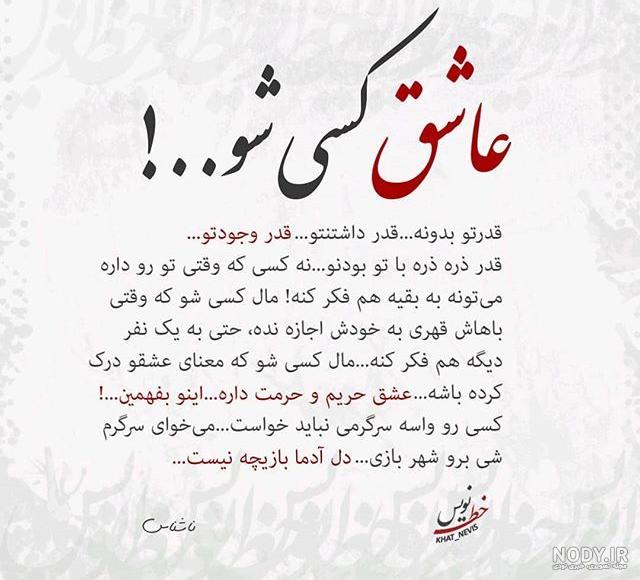 عاشق کسی شو...!
قدرتو بدونه...قدر داشتنتو...قدر وجودتو...
قدر ذره ذره با تو بودنو...نه کسی که وقتی تو رو داره
می‌تونه به بقیه هم فکر کنه! مال کسی شو که وقتی
باهاش قهری به خودش اجازه نده، حتی به یک نفر
دیگه هم فکر کنه...مال کسی شو که معنای عشقو درک
کرده باشه...عشق حریم و حرمت داره...اینو بفهمین...!
کسی رو واسه سرگرمی نباید خواست...می‌خوای سرگرم
شی برو شهر بازی...دل آدما بازیچه نیست...
ناشناس
خط نویس
KHAT_NEVIS
NODY.IR
مجله تصویری، خبری نودی